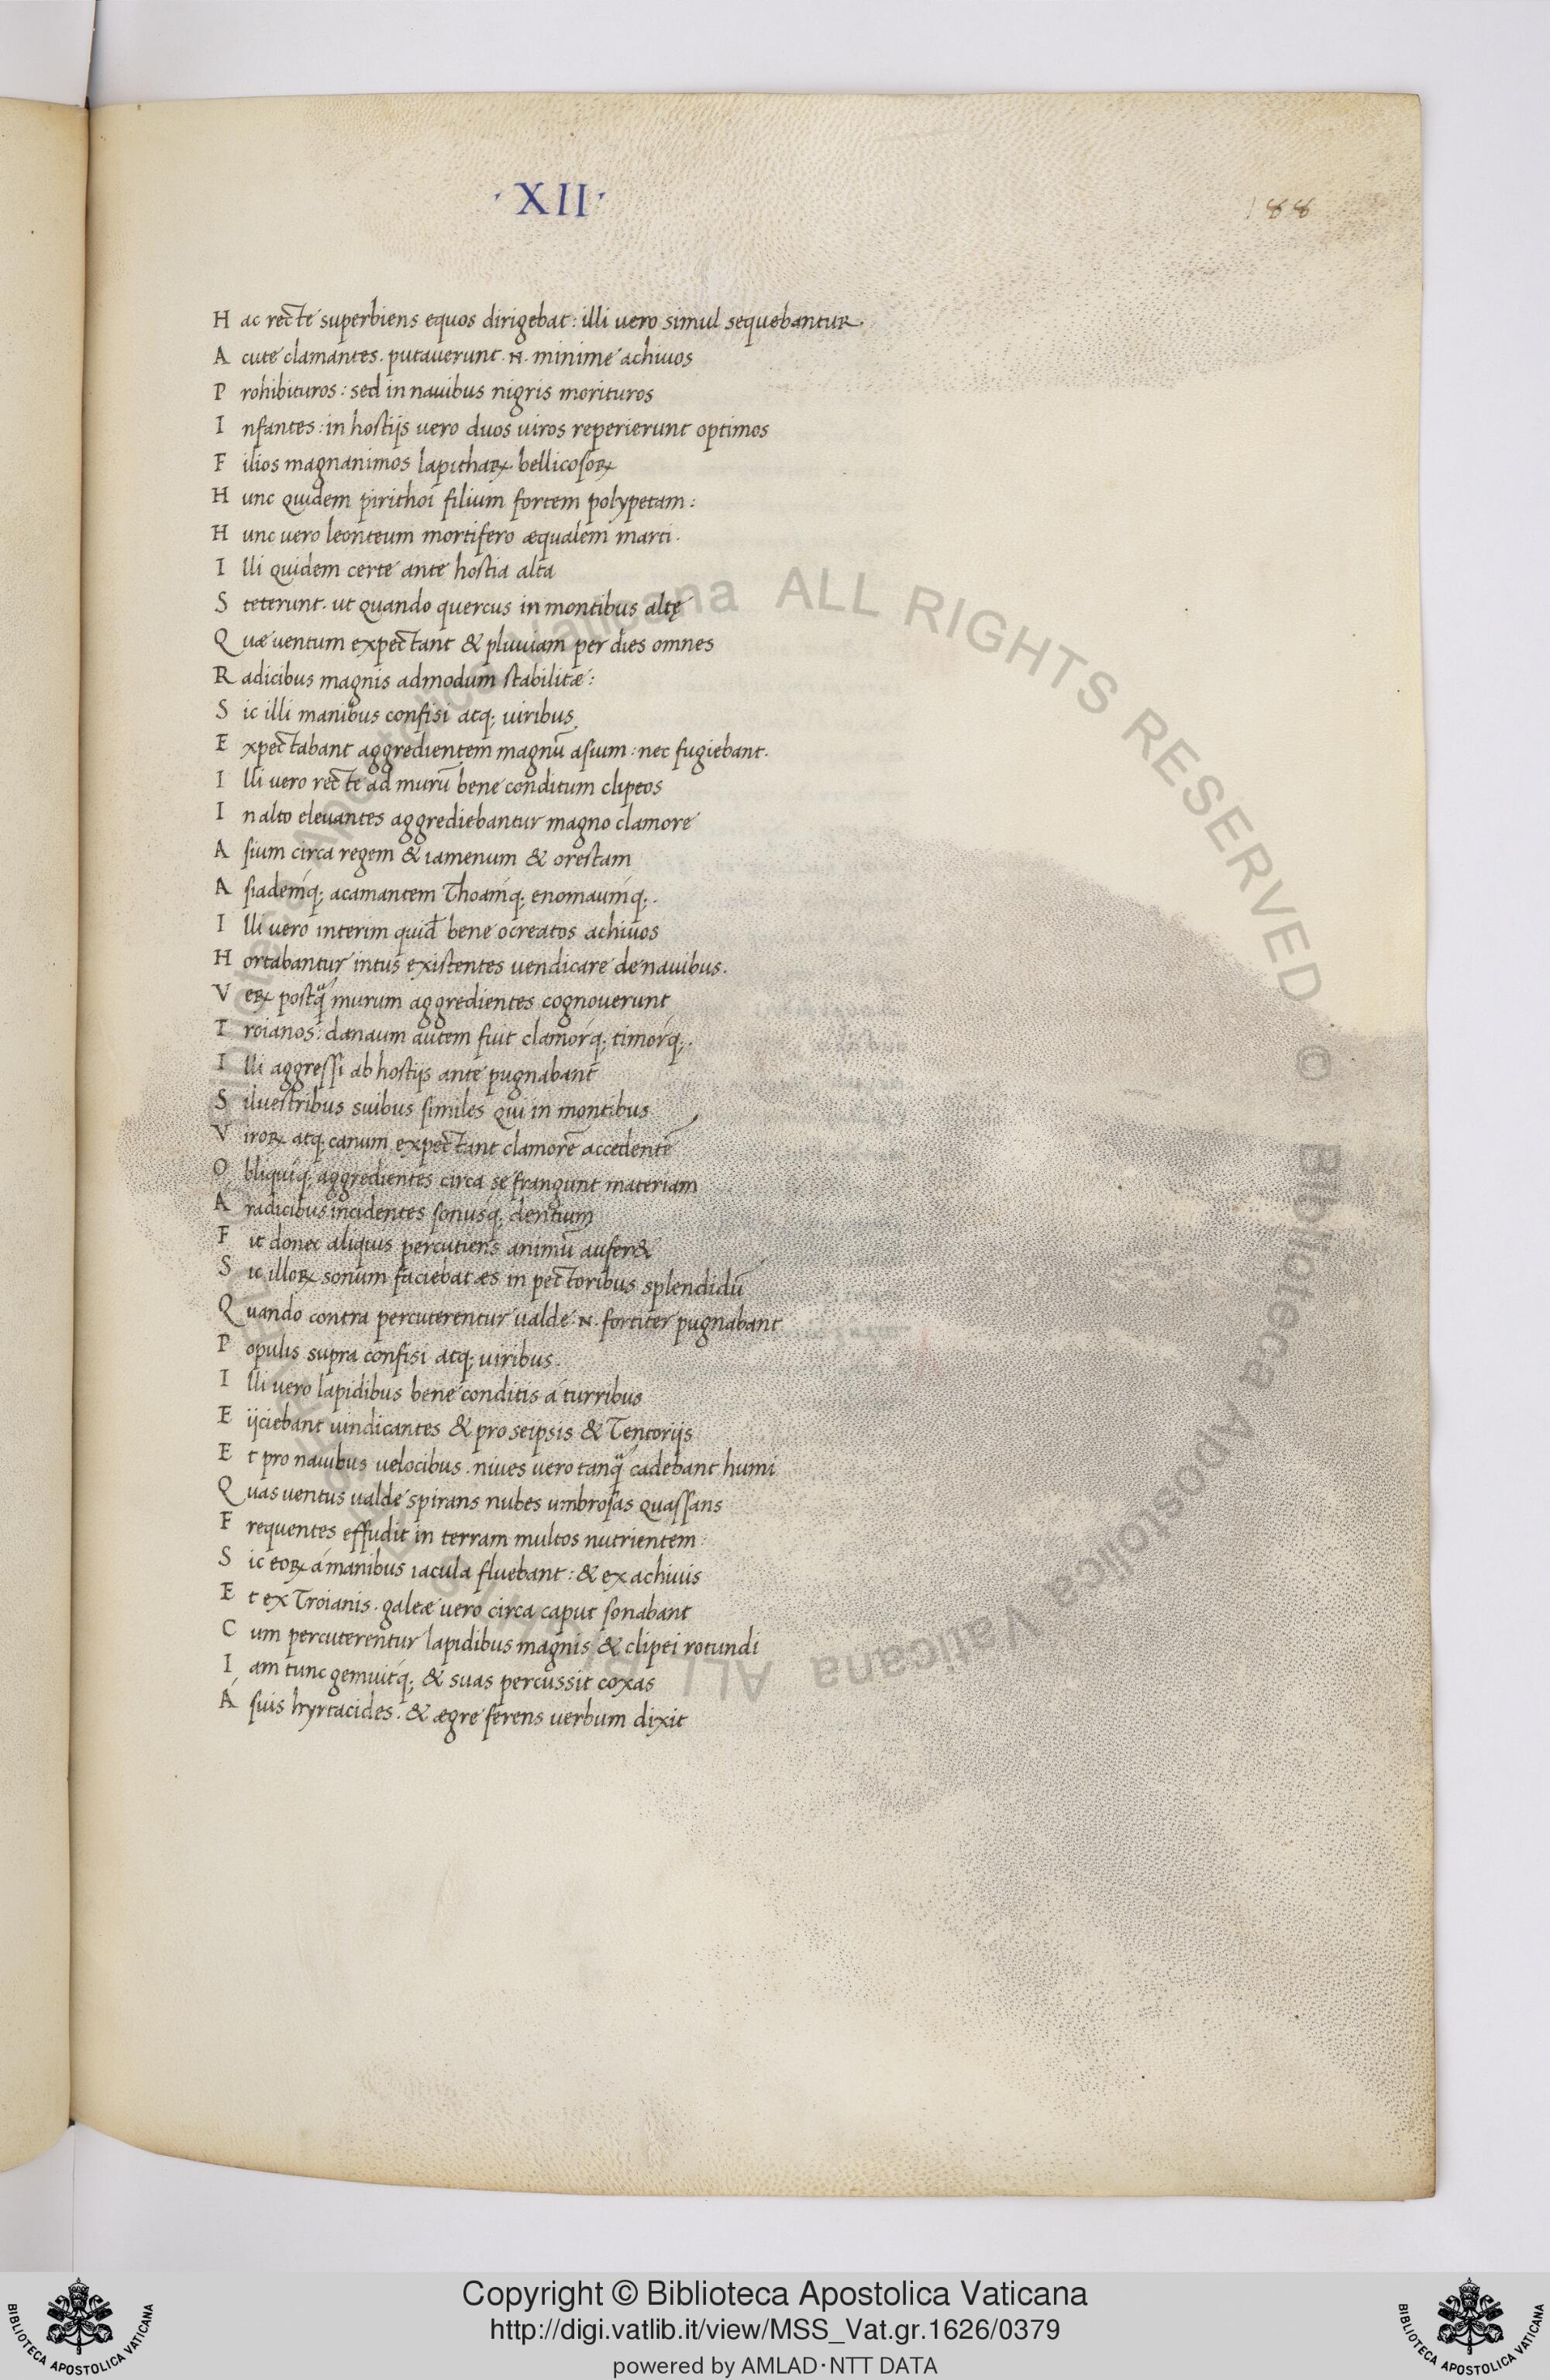 · XII ·
188
H ac recte superbiens equos dirigebat : illi uero simul sequebantur.
A cute clamantes . putauerunt .N. minime achiuos
P rohibituros : sed in nauibus nigris morituros
I nfantes : in hostijs uero duos uiros reperierunt optimos
F ilios magnanimos lapithaꝝ bellicosoꝝ
H unc quidem pirithoi filium fortem polypetam :
H unc uero leonteum mortifero æqualem marti .
I lli quidem certe ante hostia alta
S teterunt . ut quando quercus in montibus altę
Q uæ uentum expectant & pluuiam per dies omnes
R adicibus magnis admodum stabilitæ :
S ic illi manibus confisi atq; uiribus
E xpectabant aggredientem magnū asium : nec fugiebant .
I lli uero recte ad murū bene conditum clipeos
I n alto eleuantes aggrediebantur magno clamore
A sium circa regem & iamenum & orestam
A siademq; acamantem Thoamq; enomaumq; .
I lli uero interim quid̄ bene ocreatos achiuos
H ortabantur intus existentes uendicare de nauibus .
V eꝝ postq̄ murum aggredientes cognouerunt
T roianos : danaum autem fuit clamorq; timorq; .
I lli aggressi ab hostijs ante pugnabant
S iluestribus suibus similes qui in montibus
V iroꝝ atq; canum expectant clamorē accedentē
O bliquiq; aggredientes circa se frangunt materiam
A radicibus incidentes sonusq; dentium
F it donec aliquis percutiens animū aufer&
S ic illoꝝ sonum faciebat æs in pectoribus splendidū
Q uando contra percuterentur ualde .N. fortiter pugnabant
P opulis supra confisi atq; uiribus .
I lli uero lapidibus bene conditis a turribus
E ijciebant uindicantes & pro seipsis & Tentorijs
E t pro nauibus uelocibus . niues uero tanq̄ cadebant humi
Q uas uentus ualde spirans nubes umbrosas quassans
F requentes effudit in terram multos nutrientem :
S ic eoꝝ a manibus iacula fluebant : & ex achiuis
E t ex Troianis . galeæ uero circa caput sonabant
C um percuterentur lapidibus magnis & clipei rotundi
I am tunc gemuitq; & suas percussit coxas
A sius hyrtacides . & ægre ferens uerbum dixit
Biblioteca Apostolica Vaticana ALL RIGHTS RESERVED © Biblioteca Apostolica Vaticana ALL
BIBLIOTECA APOSTOLICA VATICANA
Copyright © Biblioteca Apostolica Vaticana
http://digi.vatlib.it/view/MSS_Vat.gr.1626/0379
powered by AMLAD·NTT DATA
BIBLIOTECA APOSTOLICA VATICANA